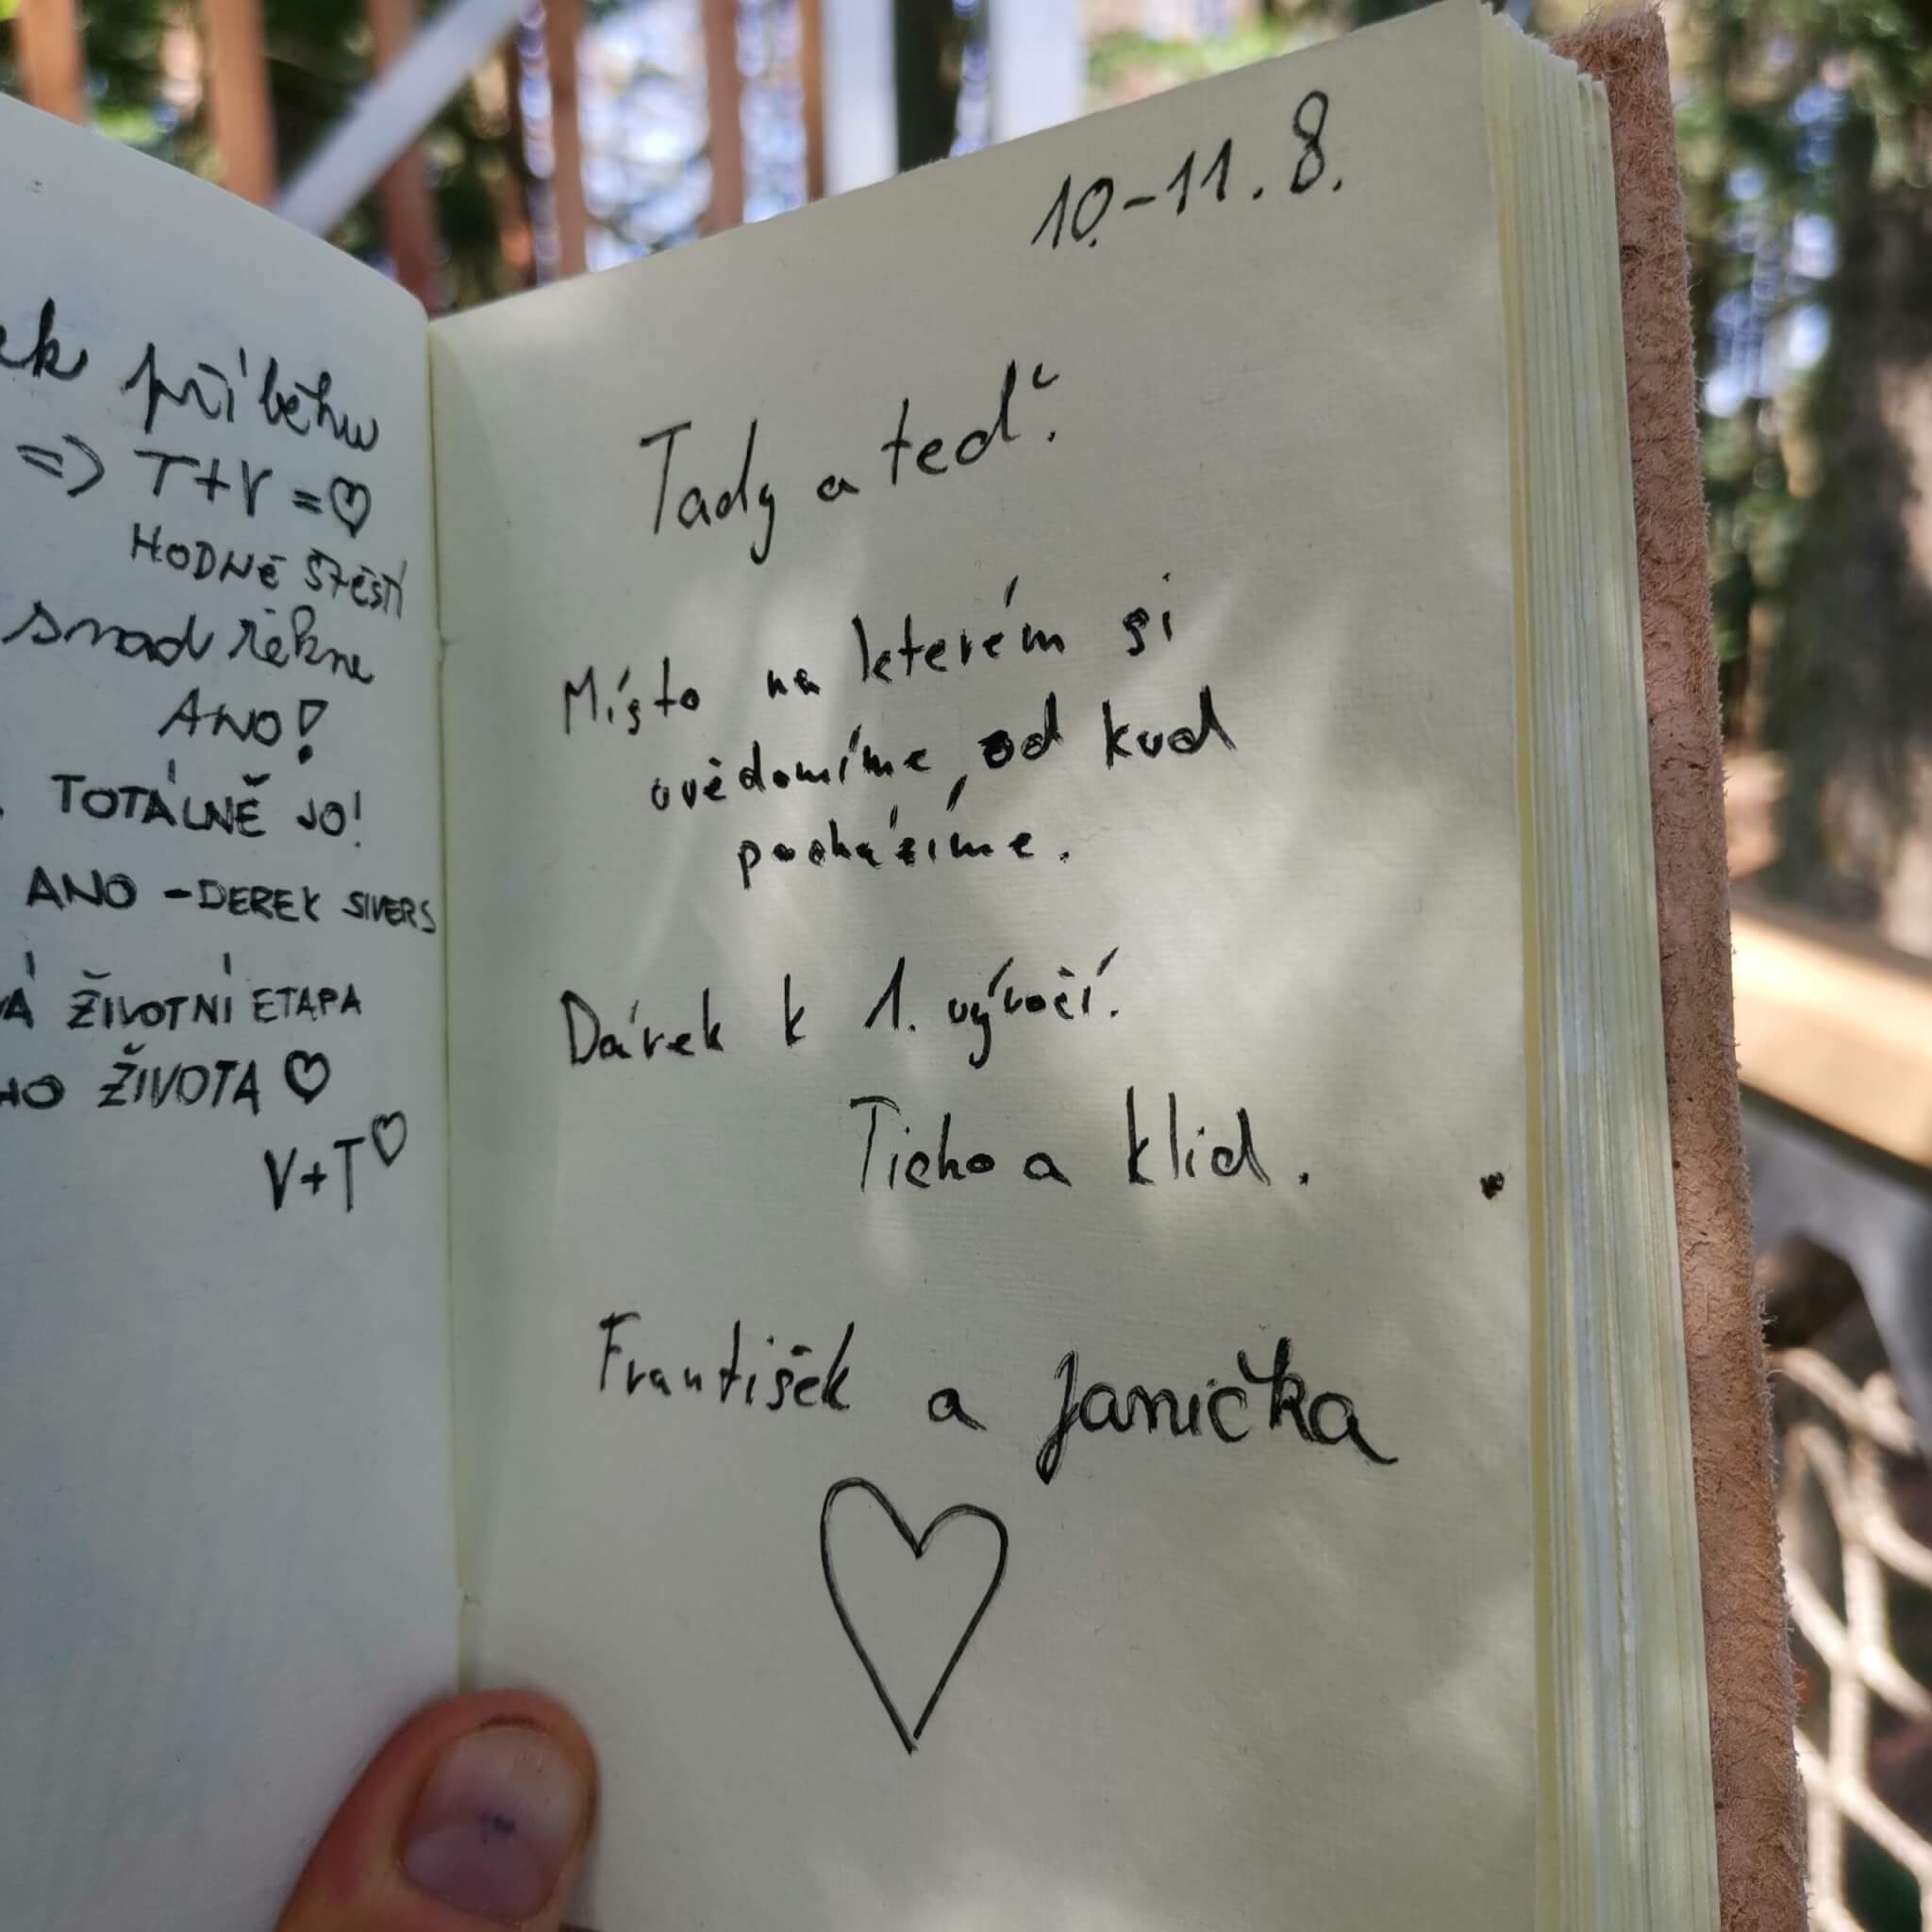 příběhu
=> T+V = ♡
HODNĚ ŠTĚSTÍ
snad řekne
ANO!
TOTÁLNĚ JO!
ANO - DEREK SIVERS
ŽIVOTNÍ ETAPA
ŽIVOTA ♡
V+T ♡
10.-11. 8.
Tady a teď.
Místo na kterém si
uvědomíme, od kud
pocházíme.
Dárek k 1. výročí.
Ticho a klid.
František a Janička